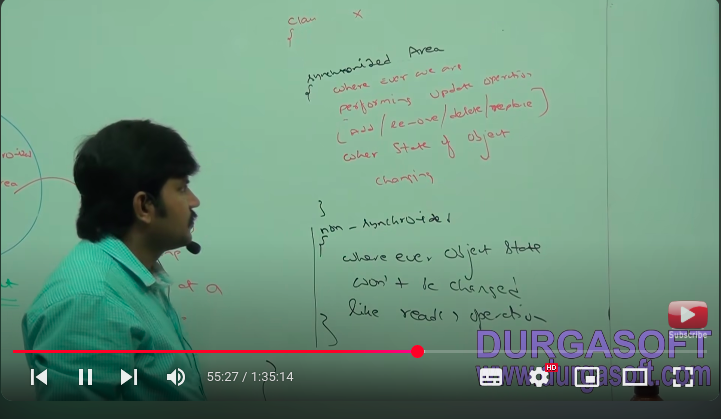 class X
{
synchronized Area
{ where ever we are
performing update operation
(add/remove/delete/replace)
when state of object
changing
}
non-synchronized
{
where ever object state
won't be changed
like read() operation
}
}
area
at a
Subscribe
DURGASOFT
www.durgasoft.com
55:27 / 1:35:14
HD